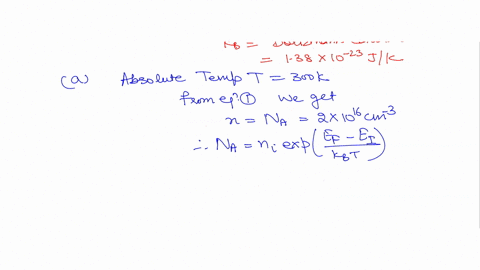 = 1.38 X 10^-23 J/K
(a) Absolute Temp T = 300k
from eqn ① we get
n = NA = 2X10^16 cm^-3
∴ NA = ni exp(EF - EI / kBT)